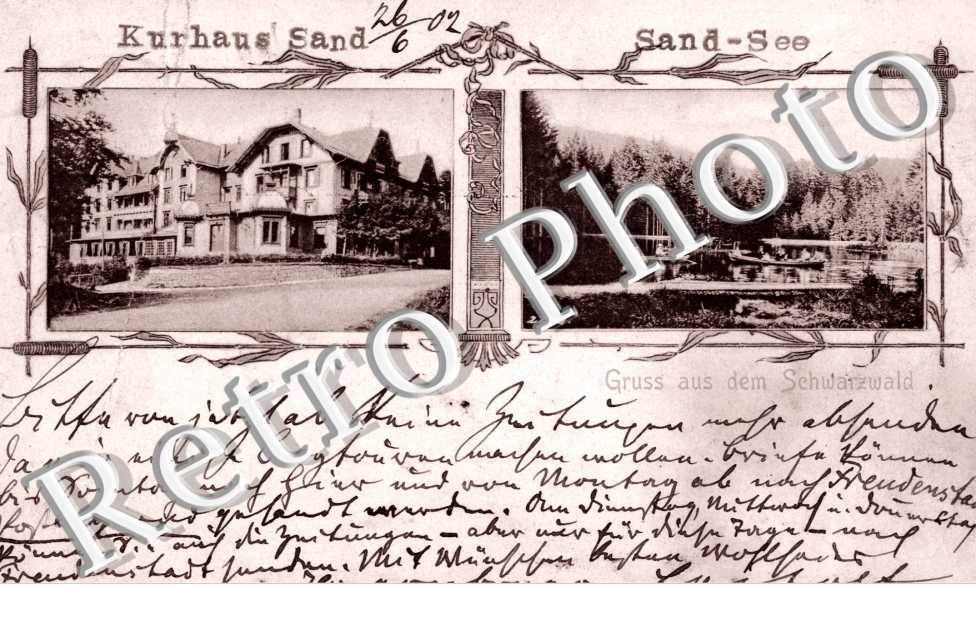 Kurhaus Sand 26/6 02 Sand-See
Gruss aus dem Schwarzwald
Bitte von jetzt ab keine Zeitungen mehr absenden
da wir Bergtouren machen wollen. Briefe können
bis Sonntag nach hier und von Montag ab nach Freudenstadt
gesandt werden. Am Dienstag, Mittwoch u. Donnerstag
auf die Zeitungen – aber nur für diese Tage – nach
Freudenstadt senden. Mit Wünschen besten
Retro Photo